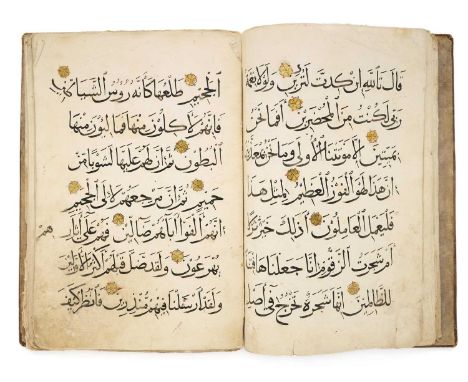 قال تالله ان كدت لتردين ولولا نعمة
ربي لكنت من المحضرين افما نحن
بميتين الا موتتنا الاولى وما نحن بمعذبين
ان هذا لهو الفوز العظيم لمثل هذا
فليعمل العاملون اذلك خير نزلا
ام شجرت الزقوم انا جعلناها فتنة
للظالمين انها شجرة تخرج في اصل
الجحيم طلعها كانه روس الشياطين
فانهم لاكلون منها فمالون منها
البطون ثم ان لهم عليها لشوبا من
حميم ثم ان مرجعهم لالى الجحيم
انهم الفوا اباهم ضالين فهم على اثارهم
يهرعون ولقد ضل قبلهم اكثر الاولين
ولقد ارسلنا فيهم منذرين فانظر كيف